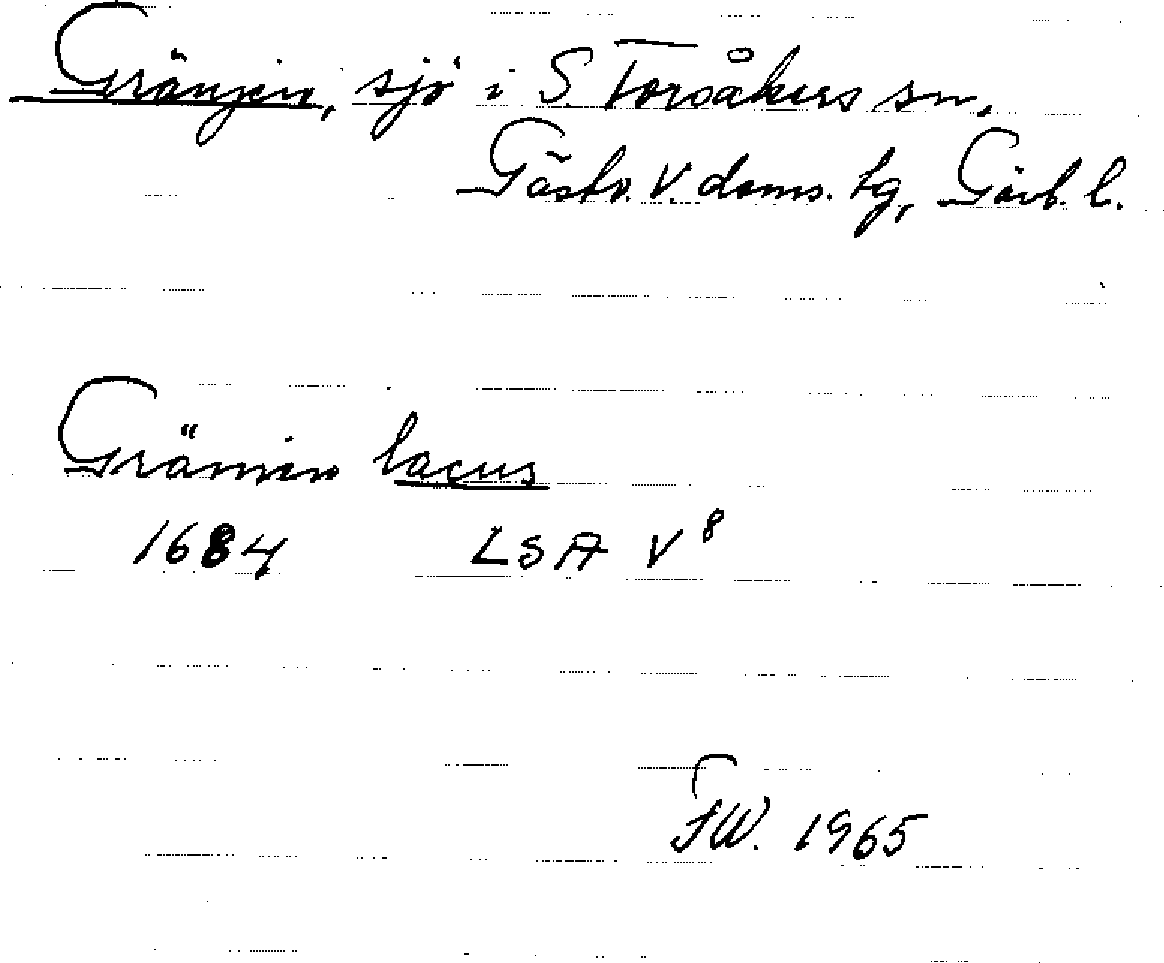 Gränjen, sjö i S. Torsåkers sn,
Gästr. V. doms. tg, Gävl. l.
Grämien lacus
1684 LSA V⁸
F.W. 1965